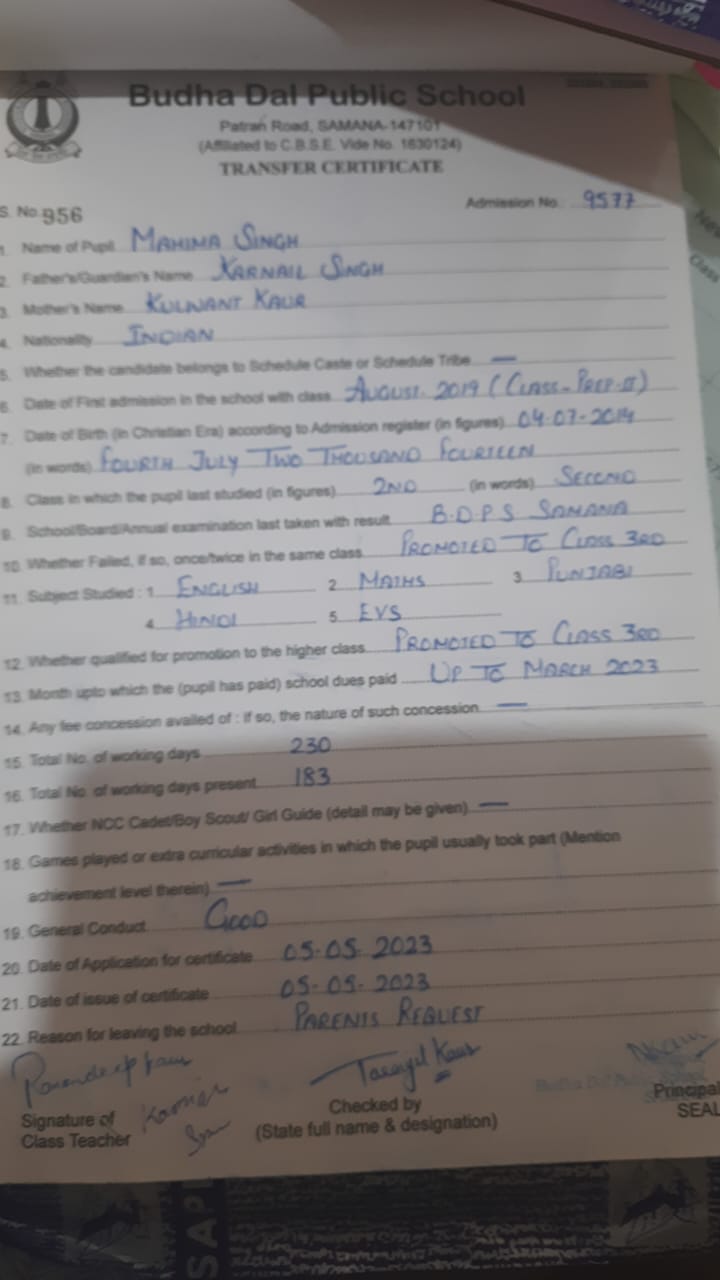 Budha Dal Public School
Patran Road, SAMANA-147101
(Affiliated to C.B.S.E. Vide No. 1630124)
TRANSFER CERTIFICATE
S. No. 956 Admission No. 9577
1. Name of Pupil MAHIMA SINGH
2. Father's/Guardian's Name KARNAIL SINGH
3. Mother's Name KULWANT KAUR
4. Nationality INDIAN
5. Whether the candidate belongs to Schedule Caste or Schedule Tribe —
6. Date of First admission in the school with class AUGUST. 2019 (CLASS-PREP-II)
7. Date of Birth (in Christian Era) according to Admission register (in figures) 04-07-2014
(in words) FOURTH JULY TWO THOUSAND FOURTEEN
8. Class in which the pupil last studied (in figures) 2ND (in words) SECOND
9. School/Board/Annual examination last taken with result B.D.P.S SAMANA
10. Whether Failed, if so, once/twice in the same class PROMOTED TO CLASS 3RD
11. Subject Studied : 1 ENGLISH 2 MATHS 3 PUNJABI
4 HINDI 5 EVS
12. Whether qualified for promotion to the higher class PROMOTED TO CLASS 3RD
13. Month upto which the (pupil has paid) school dues paid UP TO MARCH 2023
14. Any fee concession availed of : if so, the nature of such concession —
15. Total No. of working days 230
16. Total No. of working days present 183
17. Whether NCC Cadet/Boy Scout/ Girl Guide (detail may be given) —
18. Games played or extra curricular activities in which the pupil usually took part (Mention
achievement level therein) —
19. General Conduct GOOD
20. Date of Application for certificate 05-05-2023
21. Date of issue of certificate 05-05-2023
22. Reason for leaving the school PARENTS REQUEST
Budha Dal Public
Signature of Class Teacher
Checked by
(State full name & designation)
Principal
SEAL